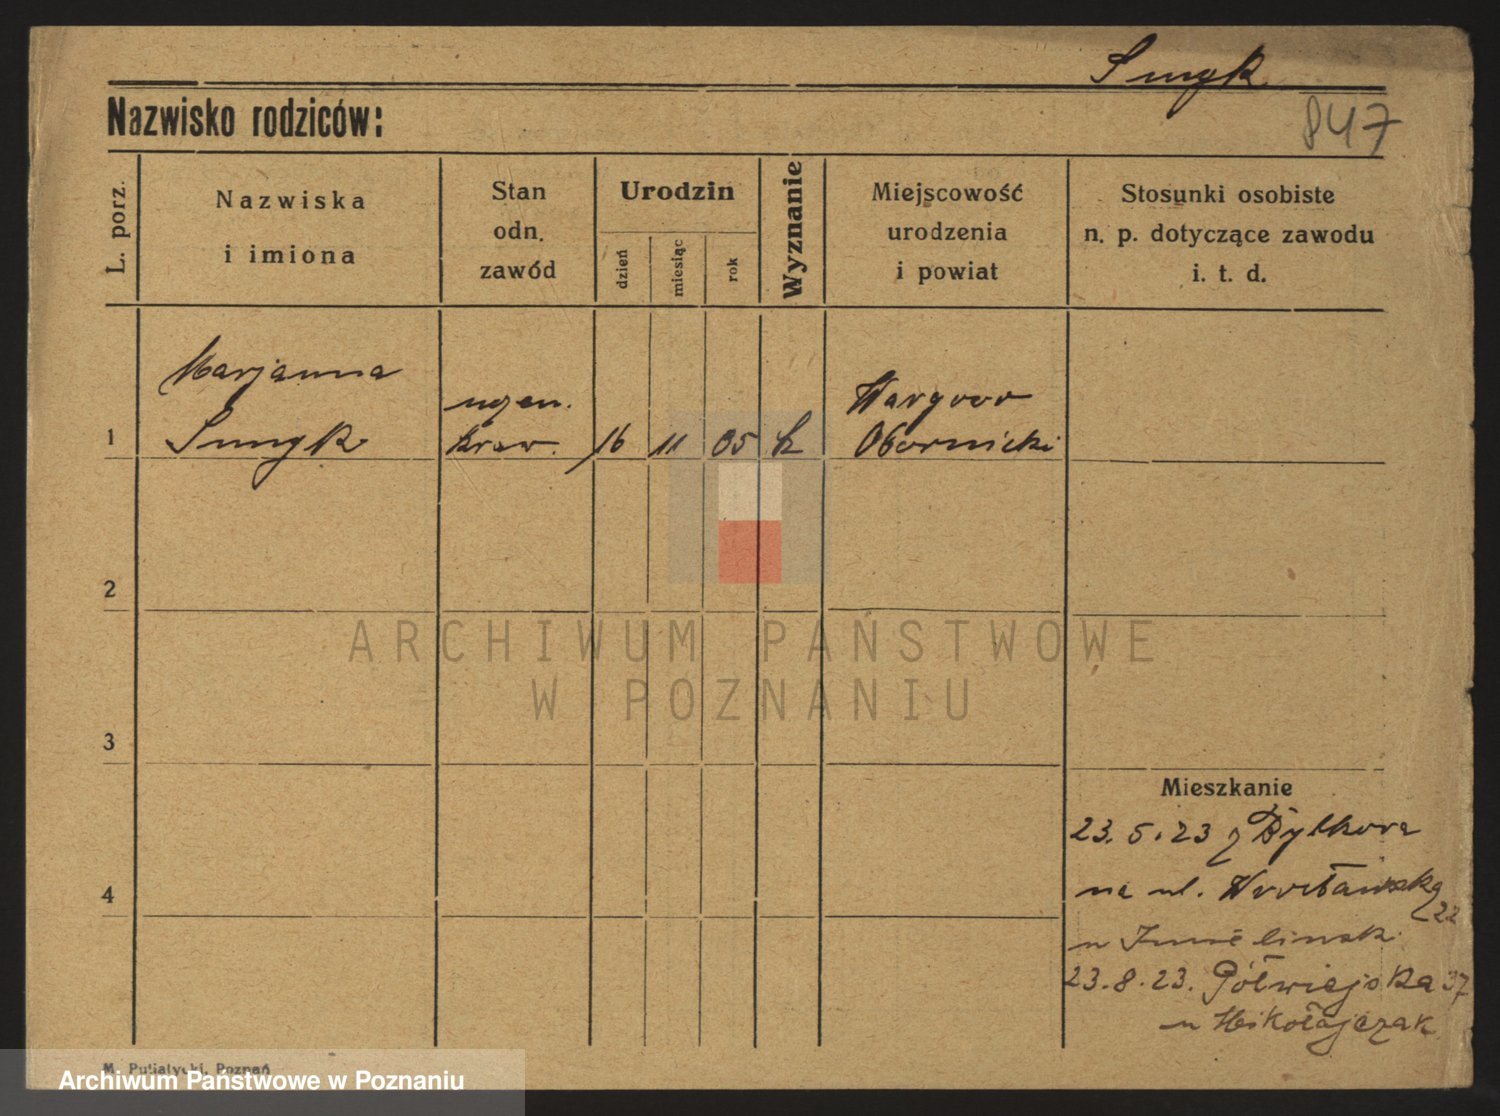 Smyk
847
Nazwisko rodziców:
L. porz.
Nazwiska
i imiona
Stan
odn.
zawód
Urodzin
dzień
miesiąc
rok
Wyznanie
Miejscowość
urodzenia
i powiat
Stosunki osobiste
n. p. dotyczące zawodu
i. t. d.
1
Marjanna
Smyk
uczen.
kraw.
16 11 05 k
Wargowo
Obornicki
2
ARCHIWUM PAŃSTWOWE
W POZNANIU
3
Mieszkanie
4
23.5.23 z Bytkowa
na ul. Wrocławską
22
u
23.8.23. Półwiejska 37
u Mikołajczak
M. Putiatycki, Poznań
Archiwum Państwowe w Poznaniu